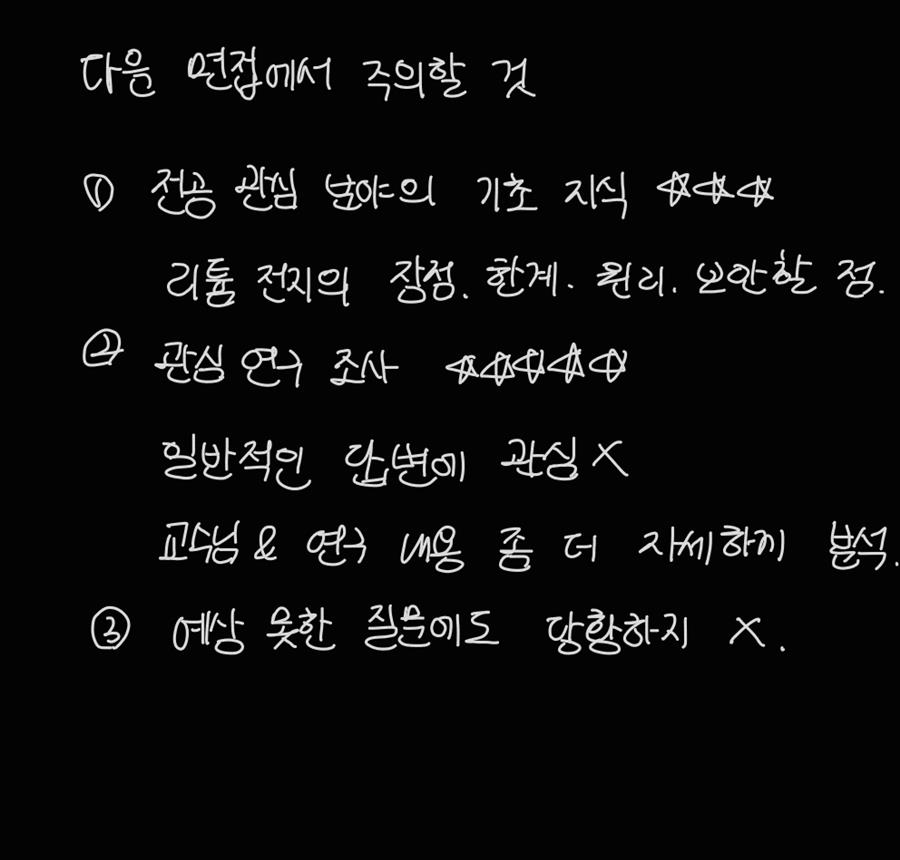 다음 면접에서 주의할 것
① 전공 관심 분야의 기초 지식 ☆☆☆
리튬 전지의 장점. 한계. 원리. 보안할 점.
② 관심 연구 조사 ☆☆☆☆☆
일반적인 답변에 관심 X
교수님 & 연구 내용 좀 더 자세하게 분석.
③ 예상 못한 질문에도 당황하지 X.